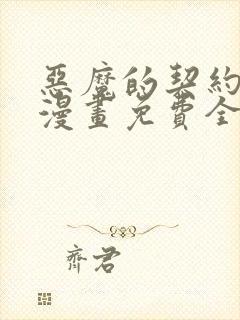 惡魔的契約
漫畫免費全
齊君